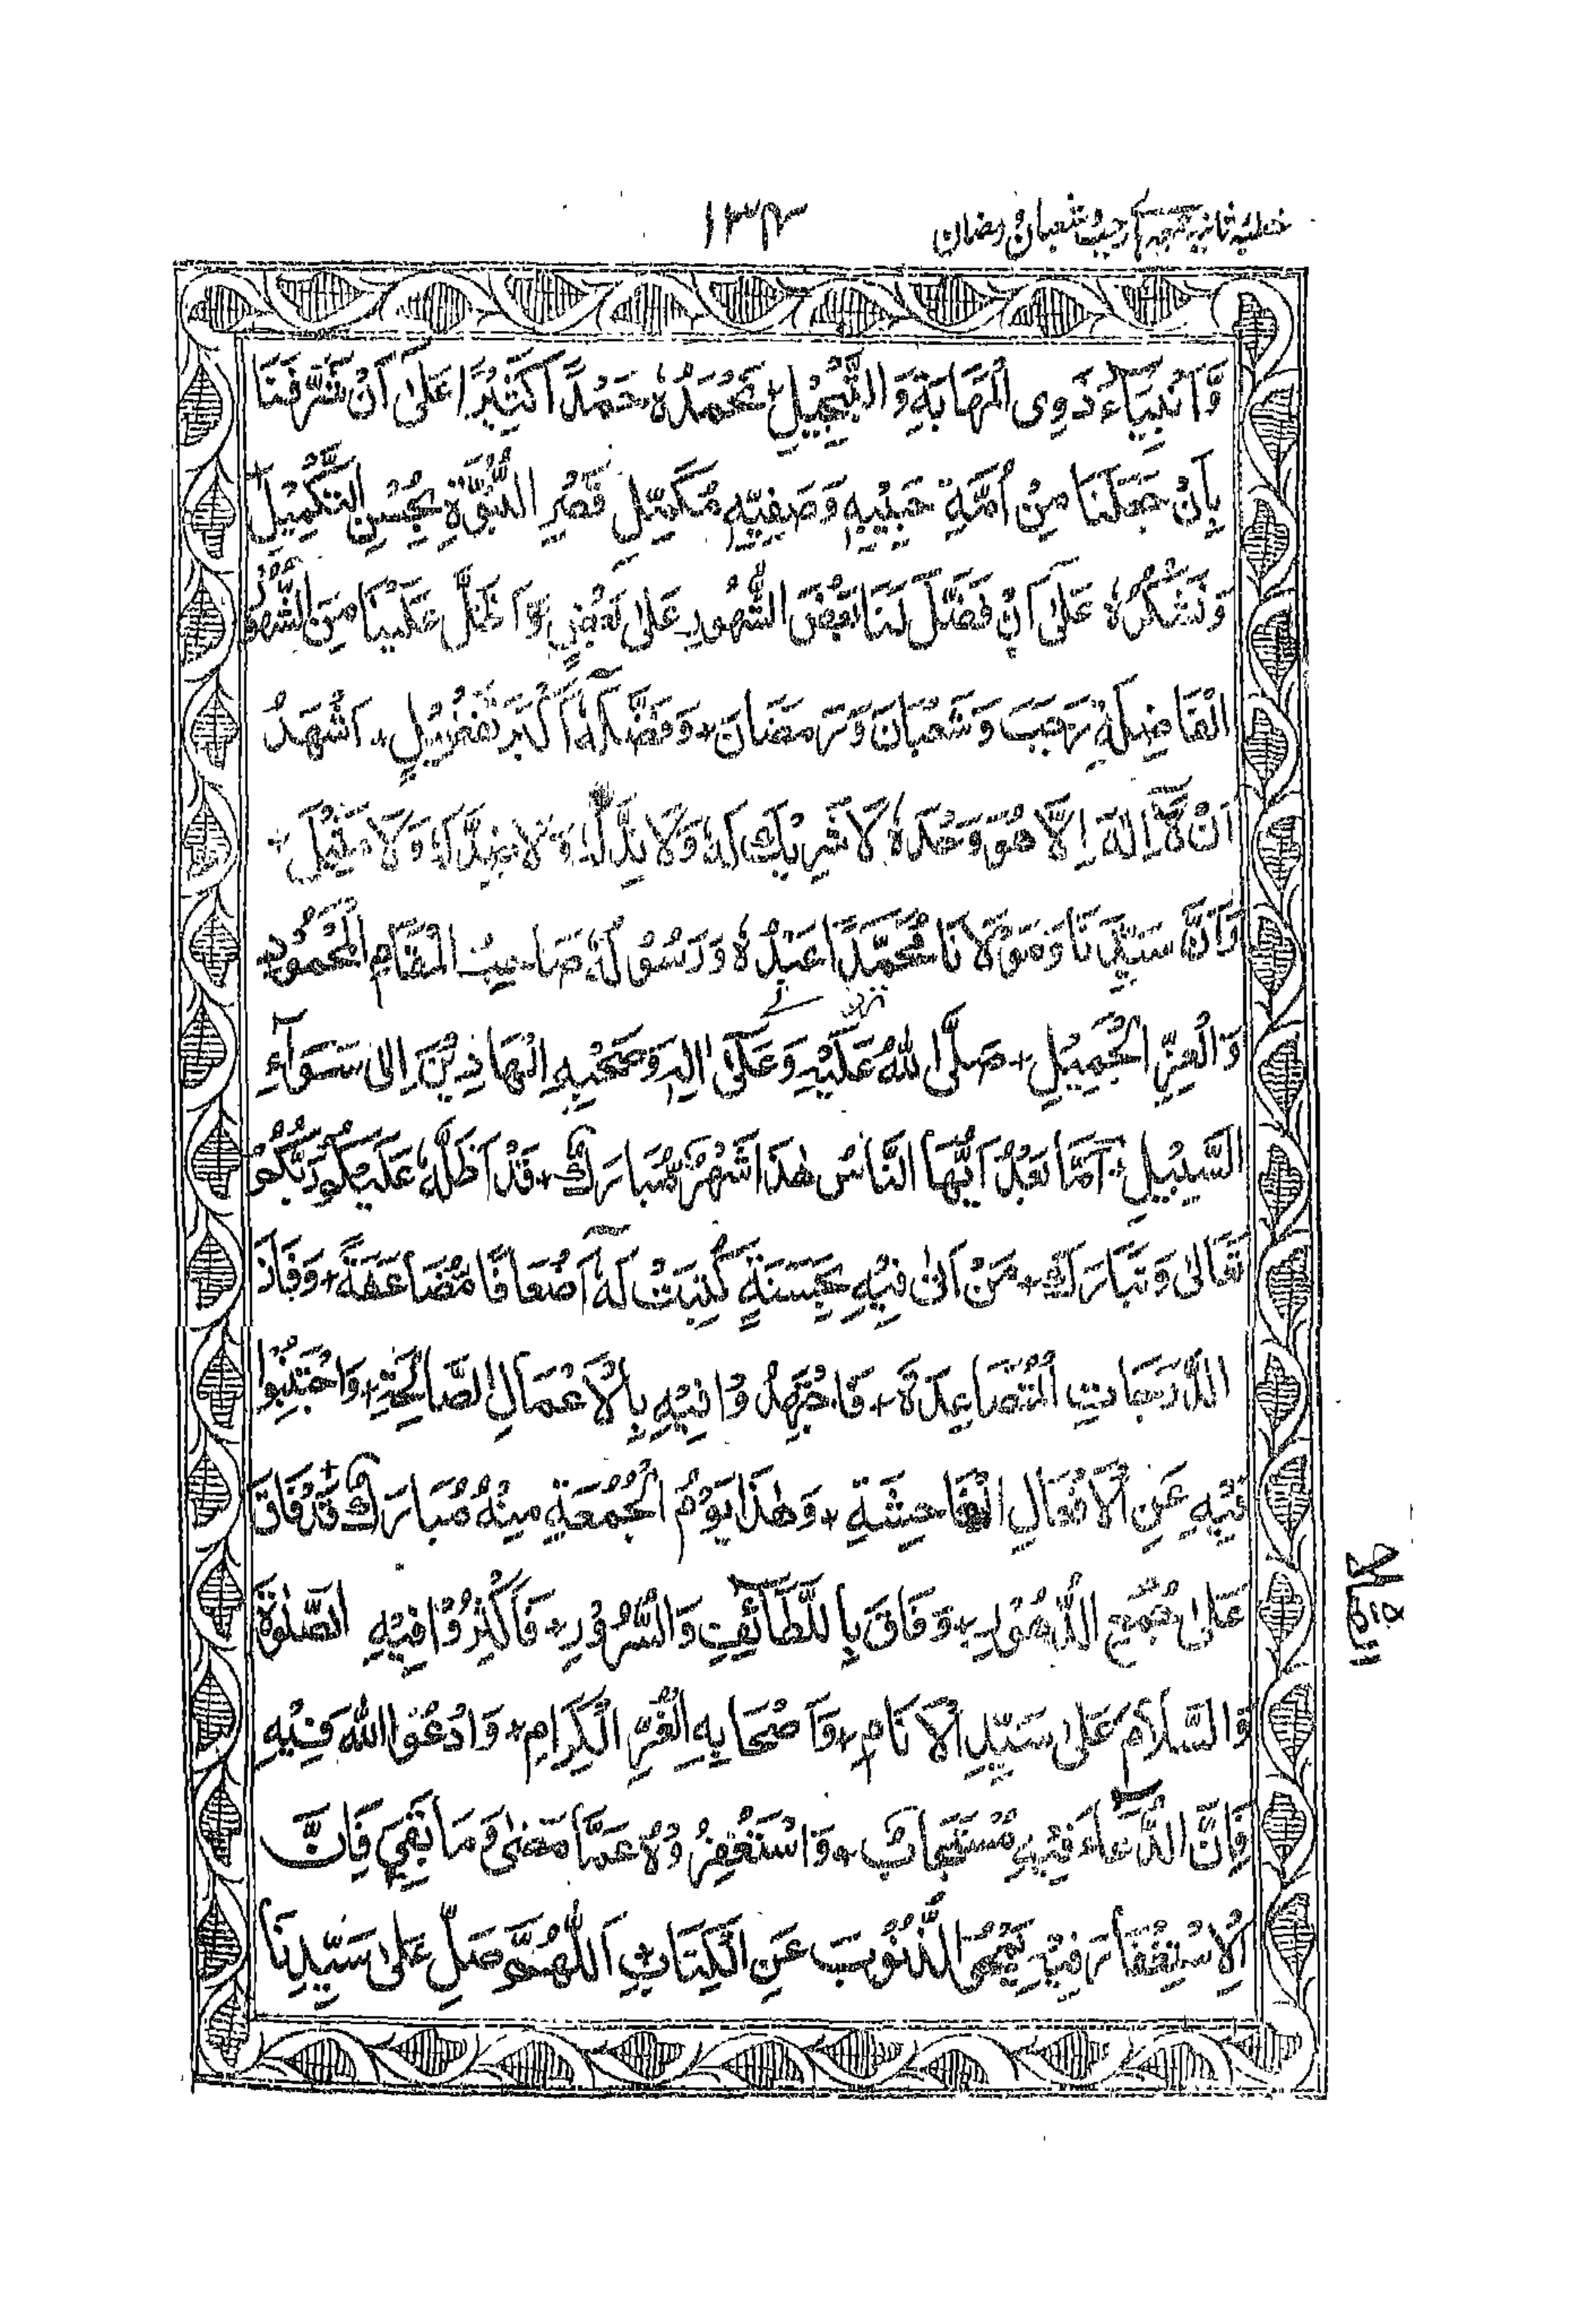 خطبہ ثانیہ جمعہ رجب شعبان رمضان
١٣٢
وَّاَنْبِيَاءَ ذَوِى الْمَهَابَةِ وَالتَّبْجِيْلِ + نَحْمَدُهٗ حَمْدًا كَثِيْرًا عَلٰى اَنْ شَرَّفَنَا
بِاَنْ جَعَلَنَا مِنْ اُمَّةِ حَبِيْبِهٖ وَصَفِيِّهٖ مُكَمِّلِ قَصْرِ النُّبُوَّةِ بِحُسْنِ التَّكْمِيْلِ +
وَنَشْكُرُهٗ عَلٰى اَنْ فَضَّلَ لَنَا بَعْضَ الشُّهُوْرِ عَلٰى بَعْضٍ وَّاَظَلَّ عَلَيْنَا مِنَ الشُّهُوْرِ
الْفَاضِلَةِ رَجَبَ وَشَعْبَانَ وَرَمَضَانَ + وَفَضَّلَهٗٓ اَكْبَرَ تَفْضِيْلٍ + اَشْهَدُ
اَنْ لَّآ اِلٰهَ اِلَّا هُوَ وَحْدَهٗ لَا شَرِيْكَ لَهٗ وَلَا نِدَّ لَهٗ وَلَا ضِدَّ لَهٗ وَلَا مَثِيْلَ +
وَاَنَّ سَيِّدَنَا وَمَوْلَانَا مُحَمَّدًا عَبْدُهٗ وَرَسُوْلُهٗ صَاحِبُ الْمَقَامِ الْمَحْمُوْدِ
وَالْعِزِّ الْجَمِيْلِ + صَلَّى اللّٰهُ عَلَيْهِ وَعَلٰٓى اٰلِهٖ وَصَحْبِهِ الْهَادِيْنَ اِلٰى سَوَآءِ
السَّبِيْلِ + اَمَّا بَعْدُ اَيُّهَا النَّاسُ هٰذَا شَهْرٌ مُّبَارَكٌ + قَدْ اَظَلَّهٗ عَلَيْكُمْ رَبُّكُمْ
تَعَالٰى وَتَبَارَكَ + مَنْ اَتٰى فِيْهِ بِحَسَنَةٍ كُتِبَتْ لَهٗٓ اَضْعَافًا مُّضَاعَفَةً + وَفَازَ
الدَّرَجَاتِ الْمُتَصَاعِدَةَ + فَاجْتَهِدُوْا فِيْهِ بِالْاَعْمَالِ الصَّالِحَةِ + وَاجْتَنِبُوْا
فِيْهِ عَنِ الْاَفْعَالِ الْفَاحِشَةِ + وَهٰذَا يَوْمُ الْجُمُعَةِ مِنْهُ مُبَارَكٌ + قَدْ فَاقَ
عَلٰى جَمِيْعِ الدُّهُوْرِ + وَفَاقَ بِاللَّطَآئِفِ وَالسُّرُوْرِ + فَاَكْثِرُوْا فِيْهِ الصَّلٰوةَ
وَالسَّلَامَ عَلٰى سَيِّدِ الْاَنَامِ + وَاَصْحَابِهِ الْغُرِّ الْكِرَامِ + وَادْعُوا اللّٰهَ فِيْهِ
فَاِنَّ الدُّعَآءَ فِيْهِ مُسْتَجَابٌ + وَاسْتَغْفِرُوْهُ عَمَّا مَضٰى وَمَا بَقِيَ فَاِنَّ
الْاِسْتِغْفَارَ فِيْهِ يَمْحُو الذُّنُوْبَ عَنِ الْكِتَابِ + اَللّٰهُمَّ صَلِّ عَلٰى سَيِّدِنَا